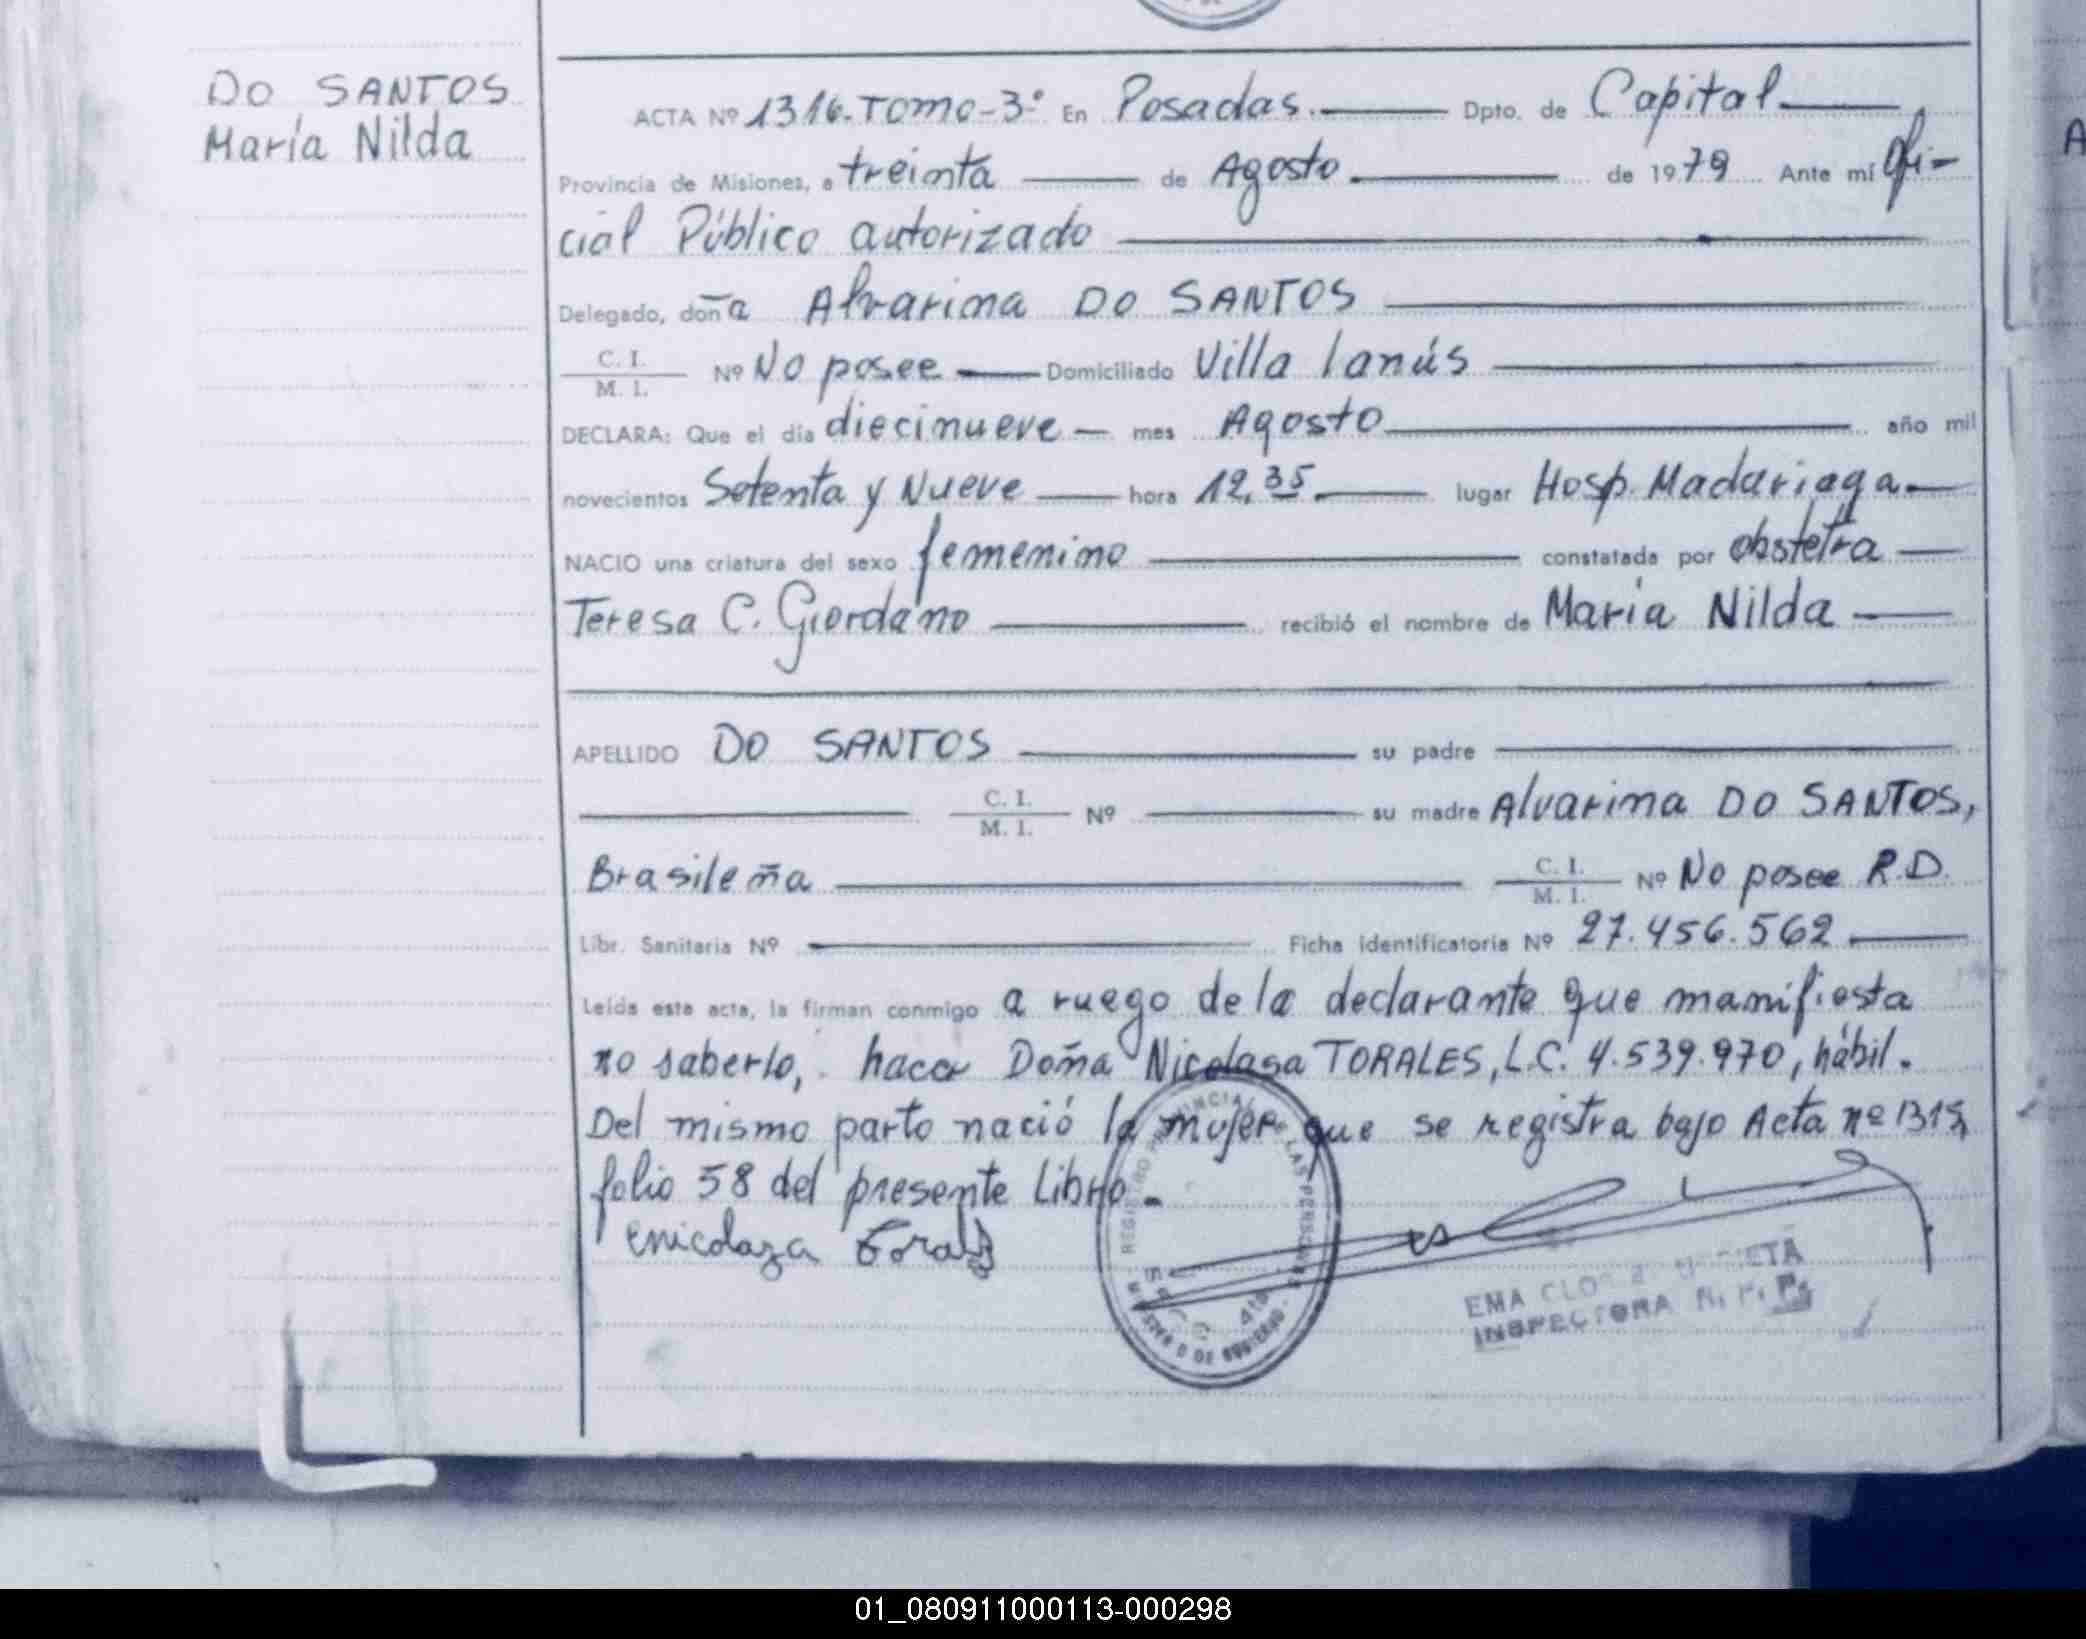 DO SANTOS
María Nilda
ACTA Nº 1316. TOMO-3º En Posadas. Dpto. de Capital
Provincia de Misiones, a treinta de Agosto de 1979 Ante mí Ofi-
cial Público autorizado
Delegado, doña Alvarina DO SANTOS
C. I.
M. I. Nº No posee Domiciliado Villa lanús
DECLARA: Que el día diecinueve mes Agosto año mil
novecientos Setenta y Nueve hora 12.35 lugar Hosp. Madariaga
NACIO una criatura del sexo femenino constatada por obstetra
Teresa C. Giordano recibió el nombre de María Nilda
APELLIDO DO SANTOS su padre
C. I.
M. I. Nº su madre Alvarina DO SANTOS,
Brasileña C. I.
M. I. Nº No posee R.D.
Libr. Sanitaria Nº Ficha identificatoria Nº 27.456.562
Leída esta acta, la firman conmigo a ruego de la declarante que manifiesta
no saberlo, hace Doña Nicolasa TORALES, L.C. 4.539.970, hábil.
Del mismo parto nació la mujer que se registra bajo Acta nº 1315,
folio 58 del presente Libro.
enicolaza
REGISTRO PROVINCIAL DE LAS PERSONAS
EMA
INSPECTORA R. P. P.
A
01_080911000113-000298